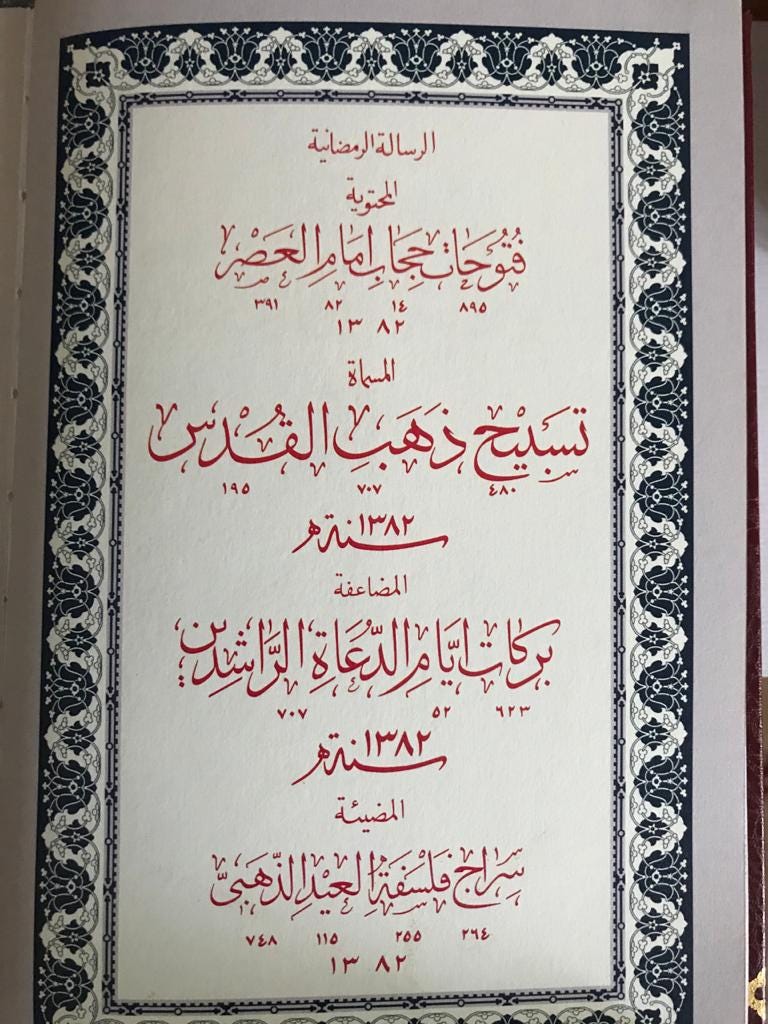 الرسالة الرمضانية
المحتوية
فُتُوحَات حِجَابِ اِمَامِ العَصْرِ
٨٩٥ ١٤ ٨٢ ٣٩١
١٣ ٨٢
المسماة
تَسبَيْح ذَهَبِ القُدْس
٤٨٠ ٧٠٧ ١٩٥
١٣٨٢ سنة ه
المضاعفة
بَركات ايَّامِ الدُّعَاةِ الرَّاشِدِين
٦٢٣ ٥٢ ٧٠٧
١٣٨٢ سنة ه
المضيئة
سِرَاج فَلْسَفَةُ العِيدِ الذَّهَبِيّ
٢٦٤ ٢٥٥ ١١٥ ٧٤٨
١٣ ٨٢